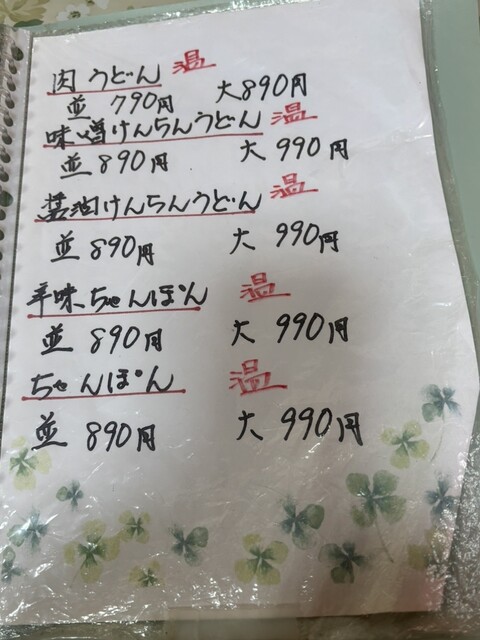 肉うどん 温
並 790円 大890円
味噌けんちんうどん 温
並 890円 大 990円
醤油けんちんうどん 温
並 890円 大 990円
辛味ちゃんぽん 温
並 890円 大 990円
ちゃんぽん 温
並 890円 大 990円